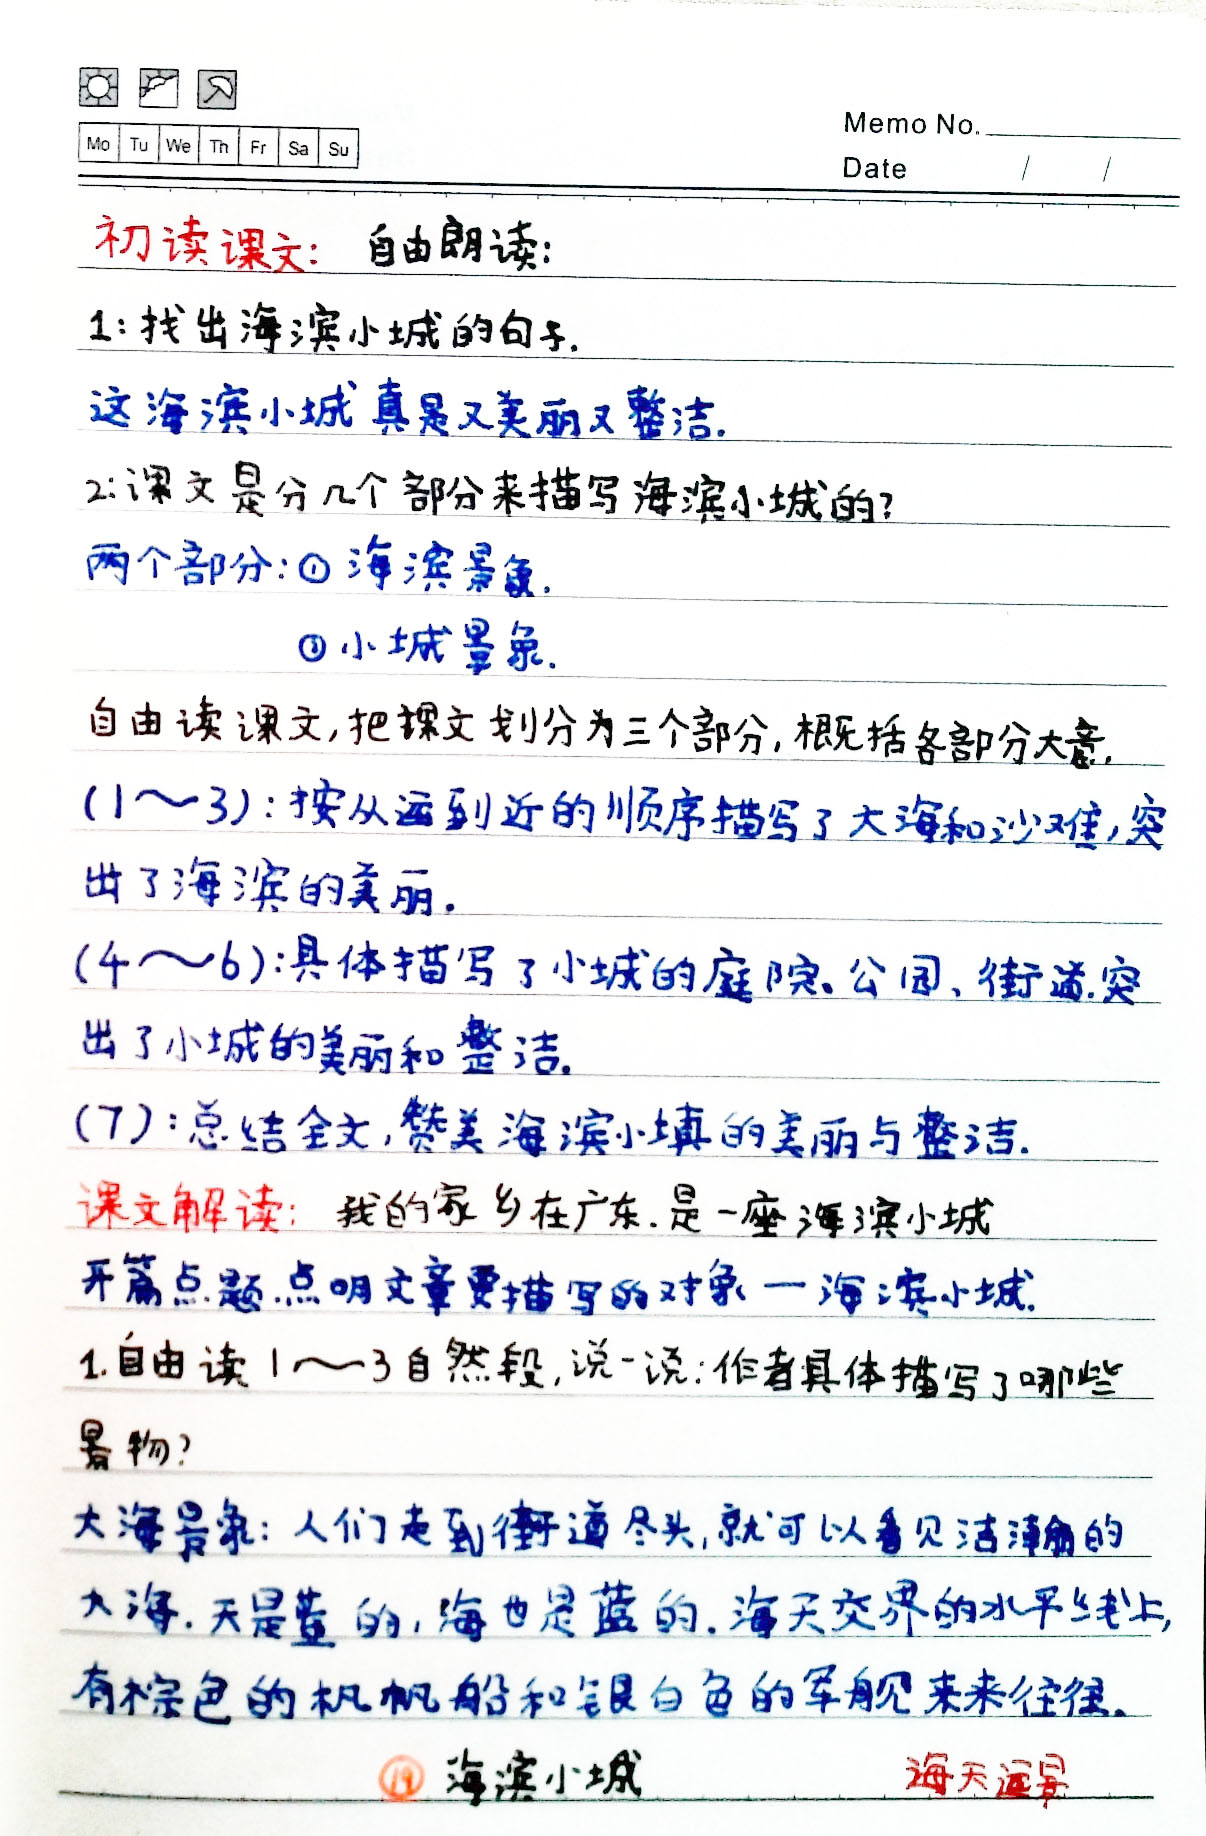 Mo Tu We Th Fr Sa Su
Memo No.
Date / /
初读课文: 自由朗读:
1:找出海滨小城的句子.
这海滨小城真是又美丽又整洁.
2:课文是分几个部分来描写海滨小城的?
两个部分:① 海滨景象.
② 小城景象.
自由读课文,把课文划分为三个部分,概括各部分大意.
(1～3):按从远到近的顺序描写了大海和沙滩,突
出了海滨的美丽.
(4～6):具体描写了小城的庭院、公园、街道.突
出了小城的美丽和整洁.
(7):总结全文,赞美海滨小填的美丽与整洁.
课文解读: 我的家乡在广东.是一座海滨小城
开篇点题.点明文章要描写的对象一海滨小城.
1.自由读1～3自然段,说一说:作者具体描写了哪些
景物?
大海景象:人们走到街道尽头,就可以看见洁瀚的
大海.天是蓝的,海也是蓝的.海天交界的水平线上,
有棕色的机帆船和银白色的军舰来来往往.
19 海滨小城 海天远景